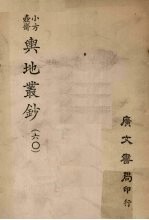 小方壺齋
輿地叢鈔
(六〇)
廣文書局印行